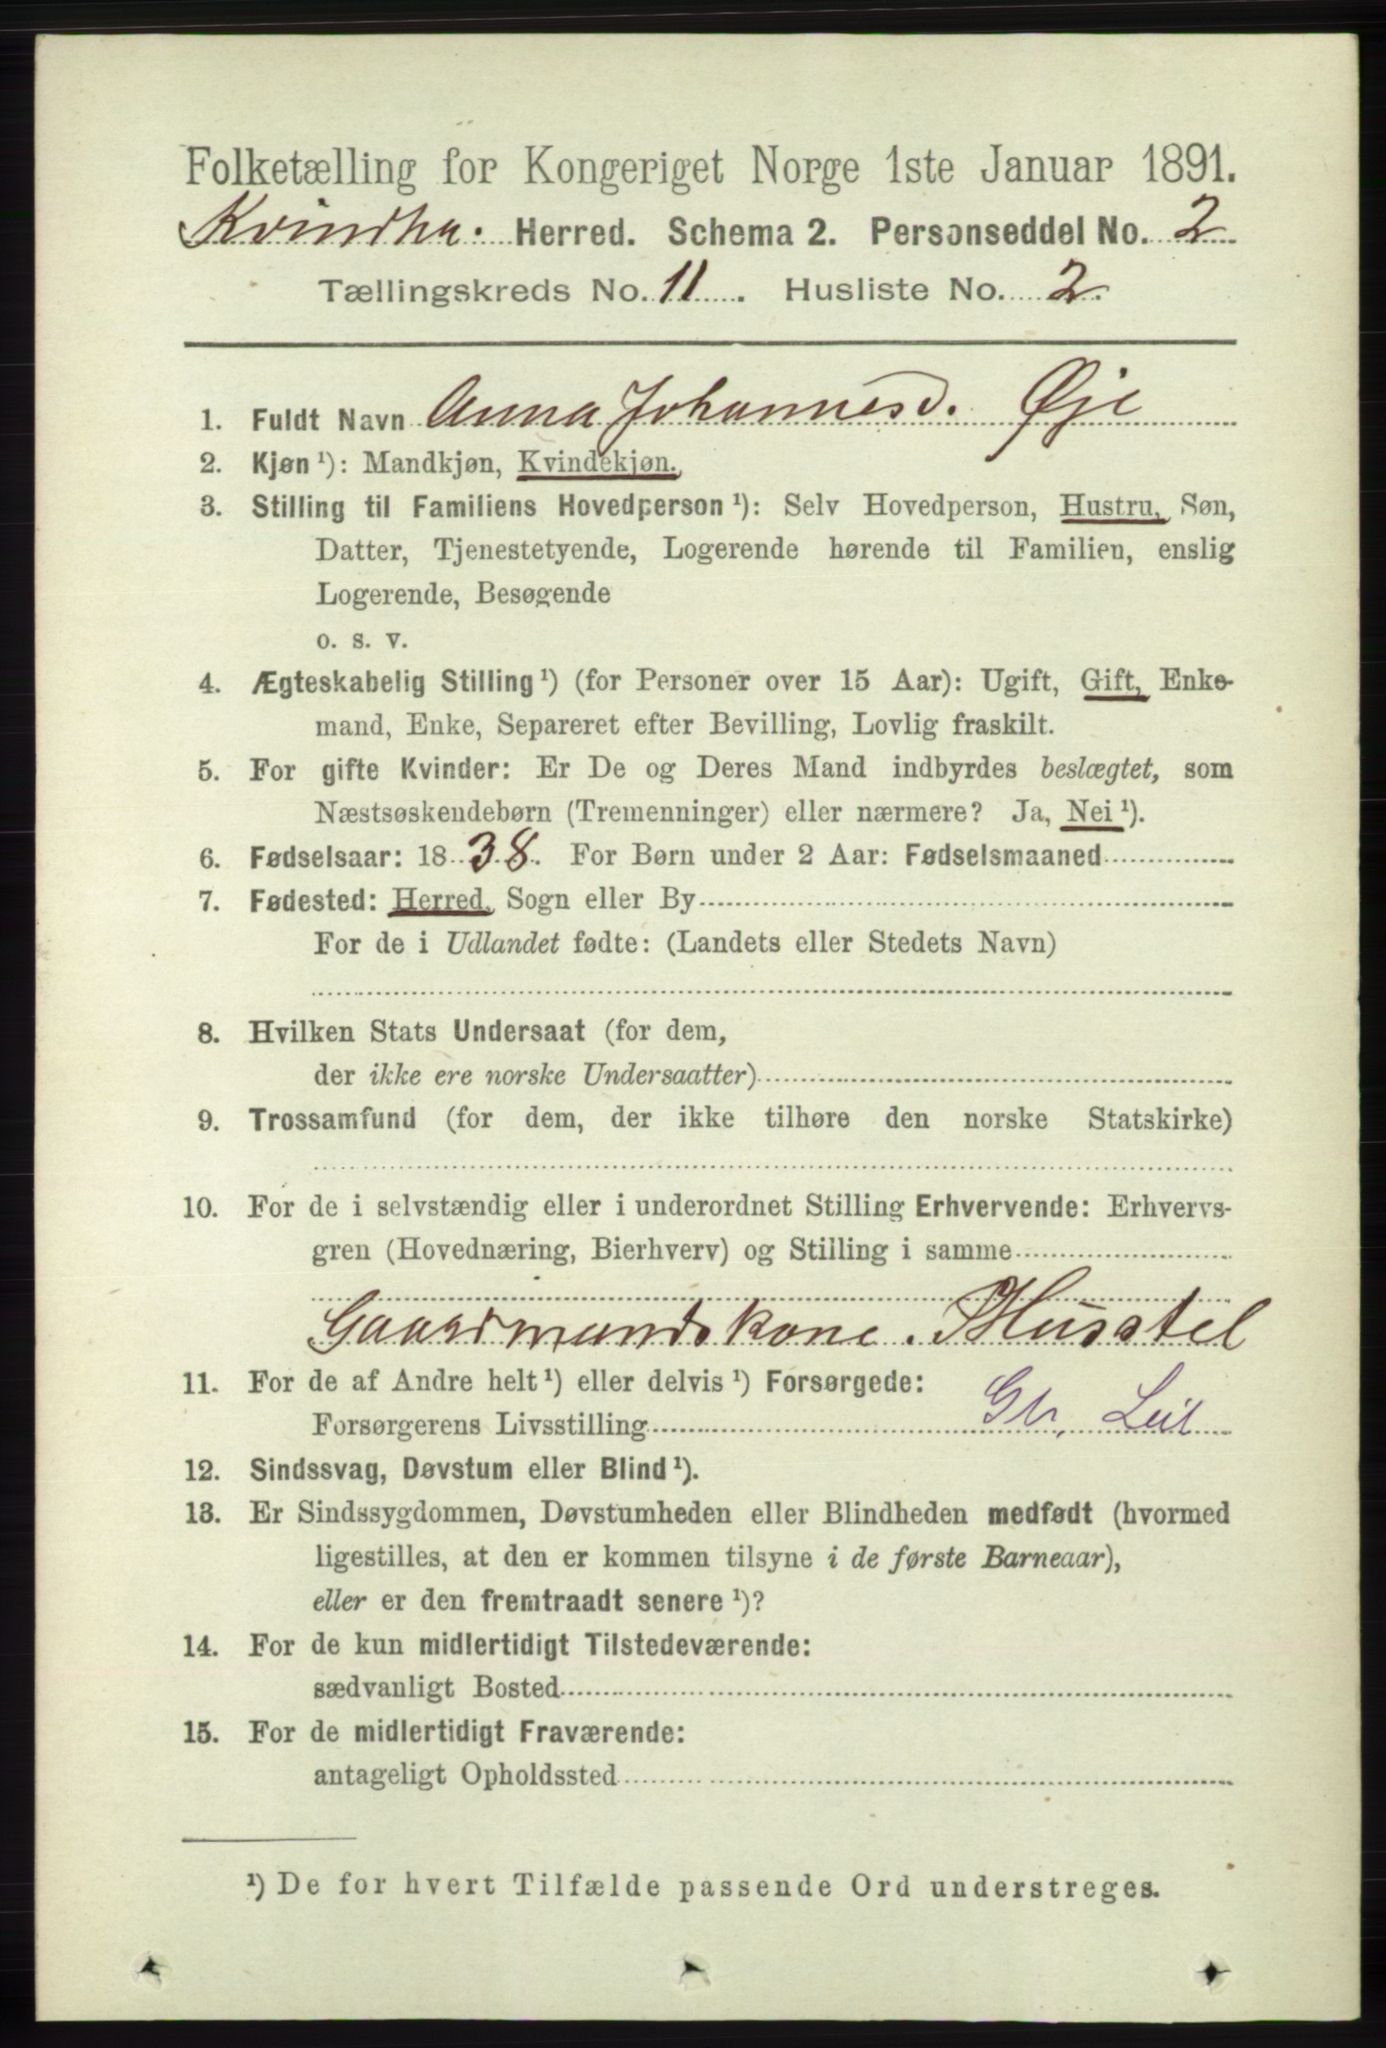 Folketælling for Kongeriget Norge 1ste Januar 1891.
Kvindhr. Herred. Schema 2. Personseddel No. 2
Tællingskreds No. 11. Husliste No. 2.
1. Fuldt Navn Anna Johannesd. Øje
2. Kjøn ¹): Mandkjøn, Kvindekjøn.
3. Stilling til Familiens Hovedperson ¹): Selv Hovedperson, Hustru, Søn,
Datter, Tjenestetyende, Logerende hørende til Familien, enslig
Logerende, Besøgende
o. s. v.
4. Ægteskabelig Stilling ¹) (for Personer over 15 Aar): Ugift, Gift, Enke-
mand, Enke, Separeret efter Bevilling, Lovlig fraskilt.
5. For gifte Kvinder: Er De og Deres Mand indbyrdes beslægtet, som
Næstsøskendebørn (Tremenninger) eller nærmere? Ja, Nei ¹).
6. Fødselsaar: 1838. For Børn under 2 Aar: Fødselsmaaned
7. Fødested: Herred, Sogn eller By
For de i Udlandet fødte: (Landets eller Stedets Navn)
8. Hvilken Stats Undersaat (for dem,
der ikke ere norske Undersaatter)
9. Trossamfund (for dem, der ikke tilhøre den norske Statskirke)
10. For de i selvstændig eller i underordnet Stilling Erhvervende: Erhvervs-
gren (Hovednæring, Bierhverv) og Stilling i samme
Gaardmandskone. Husstel
11. For de af Andre helt ¹) eller delvis ¹) Forsørgede:
Forsørgerens Livsstilling Gbr, Leil
12. Sindssvag, Døvstum eller Blind ¹).
13. Er Sindssygdommen, Døvstumheden eller Blindheden medfødt (hvormed
ligestilles, at den er kommen tilsyne i de første Barneaar),
eller er den fremtraadt senere ¹)?
14. For de kun midlertidigt Tilstedeværende:
sædvanligt Bosted
15. For de midlertidigt Fraværende:
antageligt Opholdssted
¹) De for hvert Tilfælde passende Ord understreges.